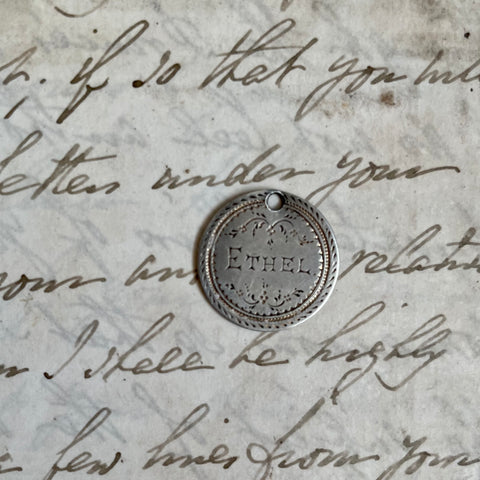 if so that you will
letters under your
your
ETHEL
relative
I shall be highly
a few lines from your